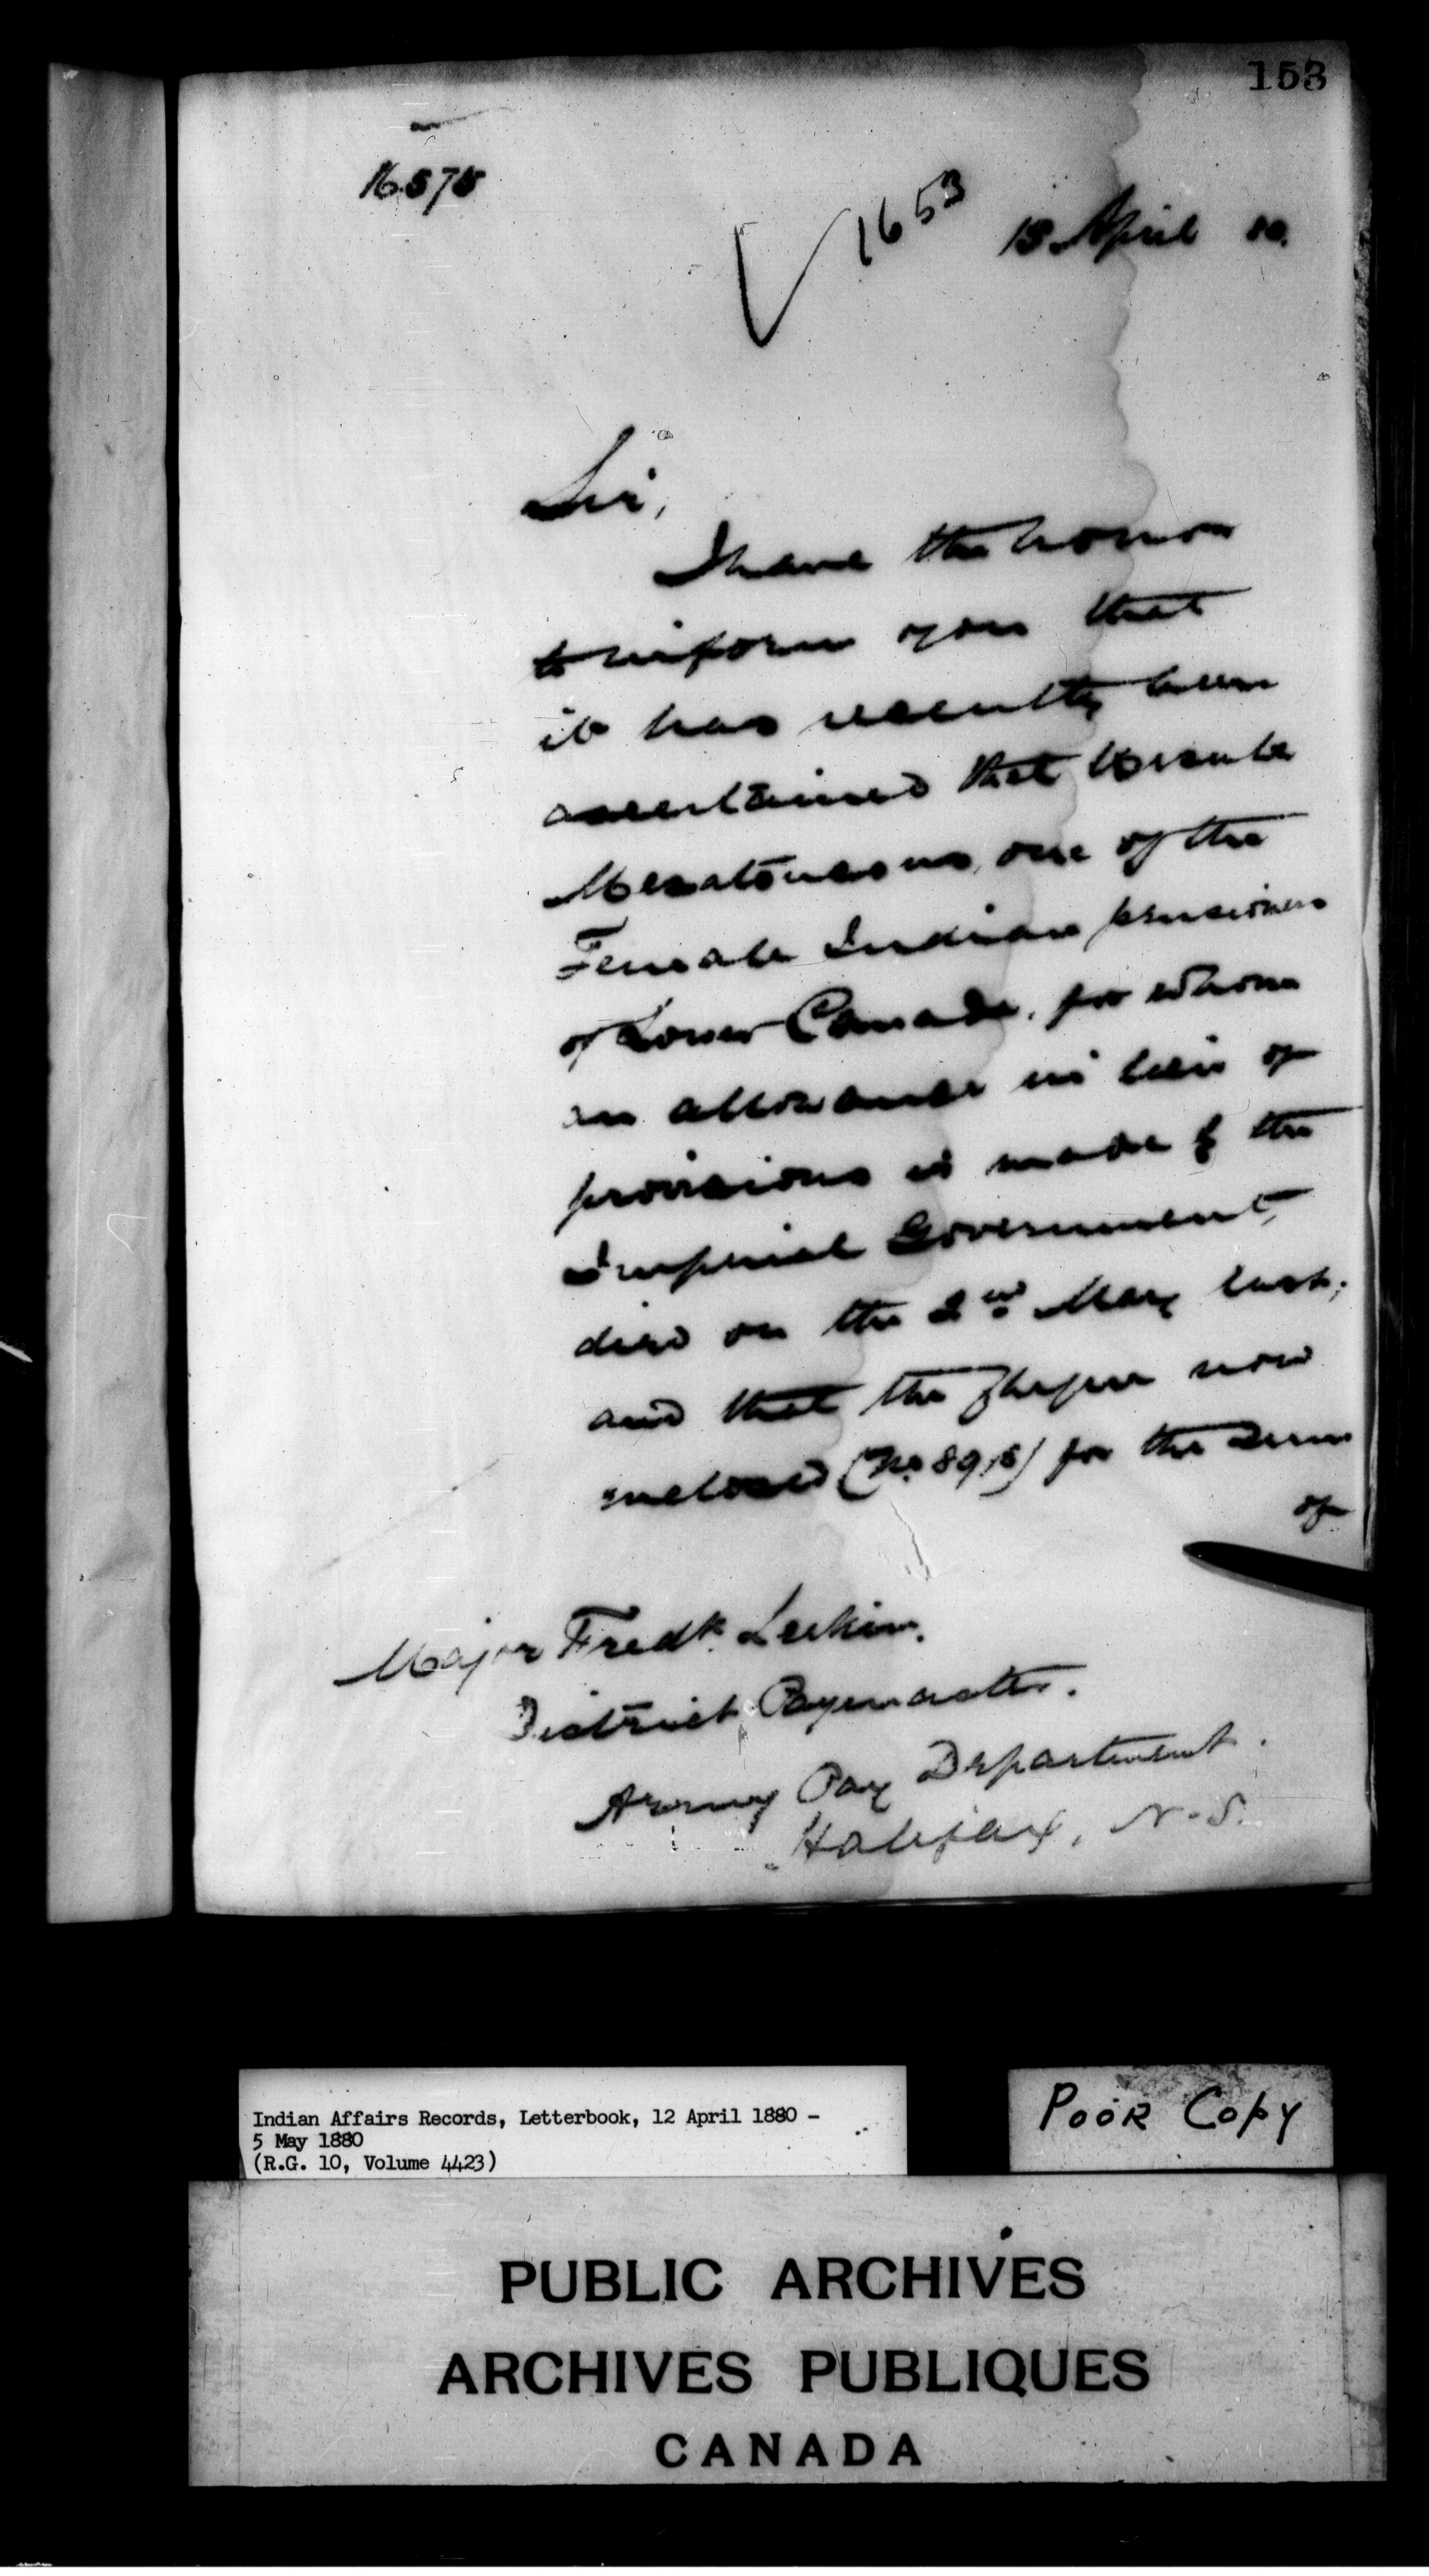 153
16575
1653
15 April 80.
Sir,
I have the honor
to inform you that
it has recently been
ascertained that
one of the
Female Indian pensioners
of Lower Canada, for whom
an allowance in lieu of
provisions is made by the
Imperial Government,
died on the 2nd May last;
and that the cheque now
enclosed (No 8915) for the sum
of
Major Fredk.
District Paymaster.
Army Pay Department.
Halifax, N.S.
Indian Affairs Records, Letterbook, 12 April 1880 -
5 May 1880
(R.G. 10, Volume 4423)
Poor Copy
PUBLIC ARCHIVES
ARCHIVES PUBLIQUES
CANADA